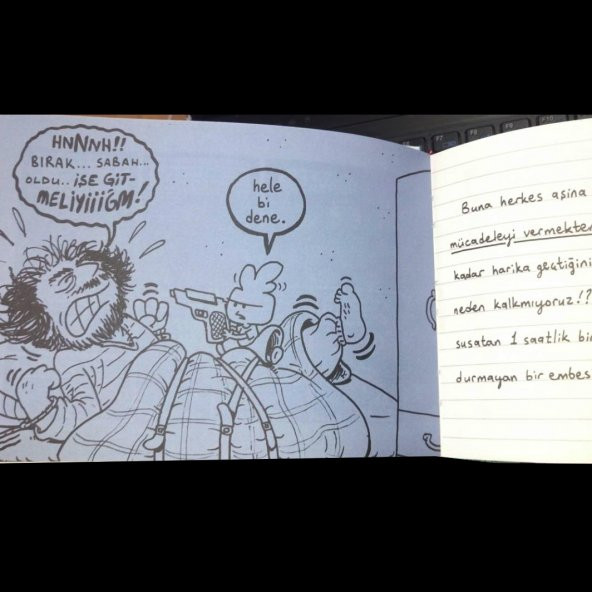 HNNNH!!
BIRAK... SABAH...
OLDU.. İŞE GİT-
MELİYİİİĞM!
hele
bi
dene.
Buna herkes aşina
mücadeleyi vermekten
kadar harika geçtiğini
neden kalkmıyoruz!?
susatan 1 saatlik bir
durmayan bir embes
F7
F8
F9
F10